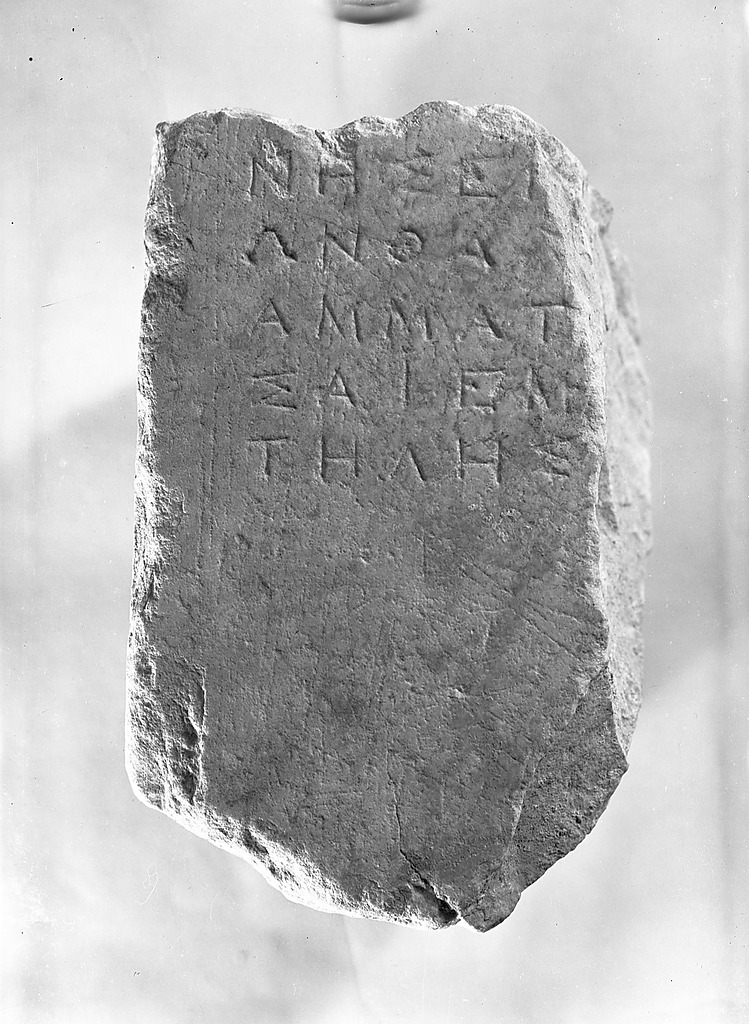 ΝΗΣΕΙ
ΑΝΘΑ
ΑΜΜΑΤ
ΣΑΙΕΝ
ΤΗΛΗΣ